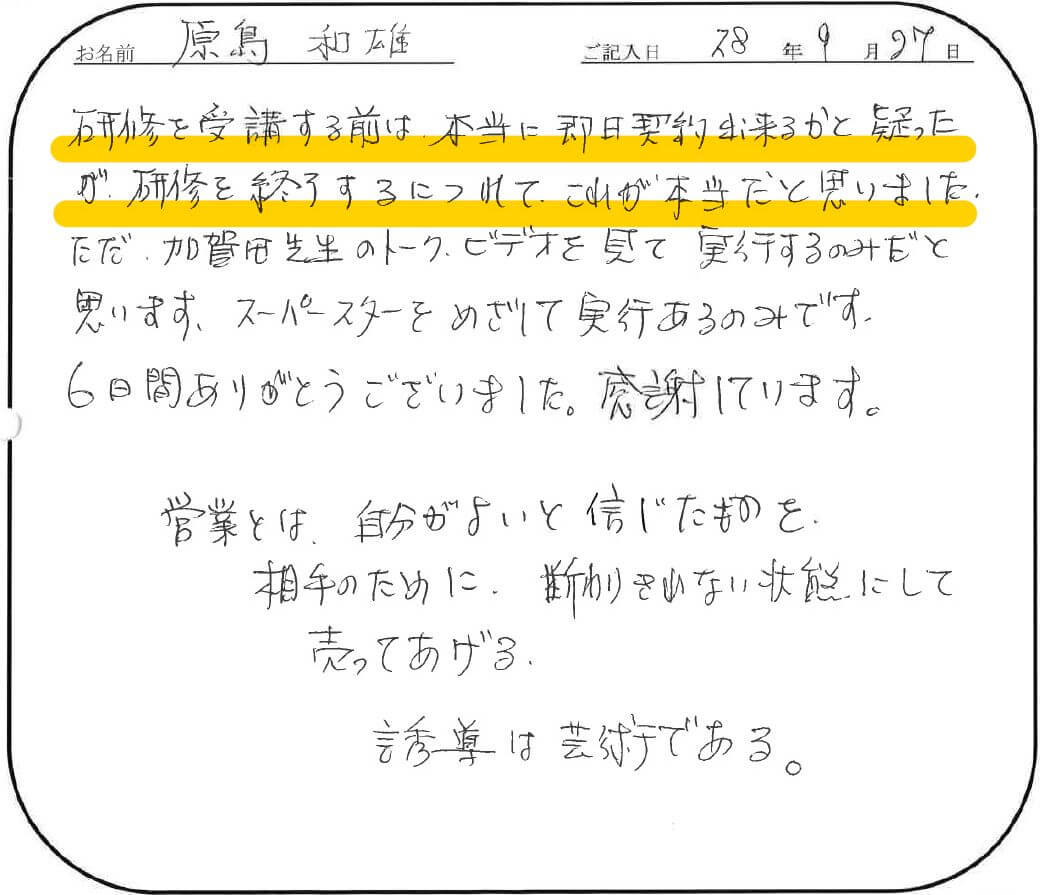 お名前 原島 和雄 ご記入日 28 年 9 月 27 日
研修を受講する前は、本当に即日契約出来るかと疑った
が、研修を終了するにつれて、これが本当だと思いました、
ただ、加賀田先生のトーク、ビデオを見て 実行するのみだと
思います、スーパースターをめざして実行あるのみです、
6日間ありがとうございました。感謝しています。
営業とは、自分がよいと信じたものを、
相手のために、断わりきれない状態にして
売ってあげる、
誘導は芸術である。